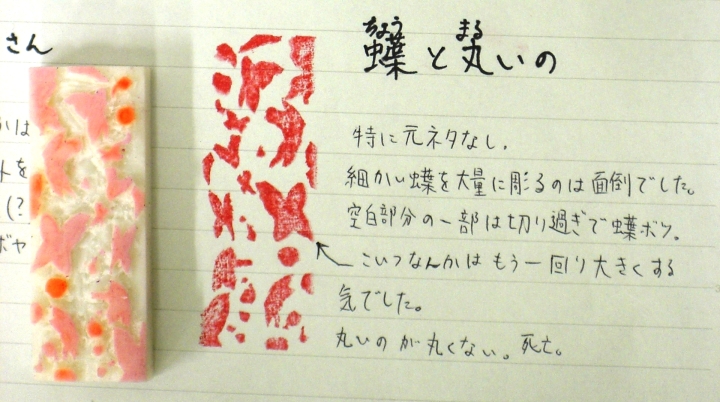 さん
蝶と丸いの
ちょう
まる
特に元ネタなし。
細かい蝶を大量に彫るのは面倒でした。
空白部分の一部は切り過ぎで蝶ボツ。
こいつなんかはもう一回り大きくする
気でした。
丸いのが丸くない。死亡。
は
トを
(?
ボヤ